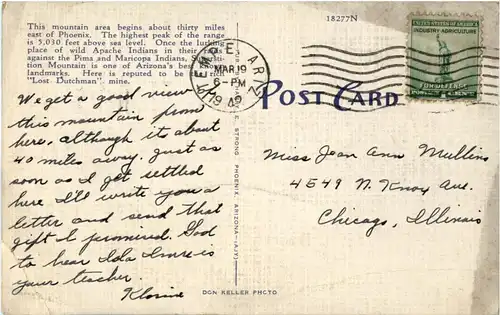 This mountain area begins about thirty miles
east of Phoenix. The highest peak of the range
is 5,030 feet above sea level. Once the lurking
place of wild Apache Indians in their raids
against the Pima and Maricopa Indians, Supersti-
tion Mountain is one of Arizona's best
landmarks. Here is reputed to be the rich
"Lost Dutchman" mine.
18277N
TEMPE, ARIZ.
MAR 19
6-PM
1942
UNITED STATES OF AMERICA
INDUSTRY AGRICULTURE
FOR DEFENSE
POST CARD
We get a good view
this mountain from
here, although its about
40 miles away. Just as
soon as I get settled
here I'll write you a
letter and send that
gift I promised. Glad
to hear Ida Imre is
your teacher.
Miss Jean Ann Mullins
4549 N. Knox Ave.
Chicago, Illinois
E. STRONG PHOENIX, ARIZONA
DON KELLER PHOTO